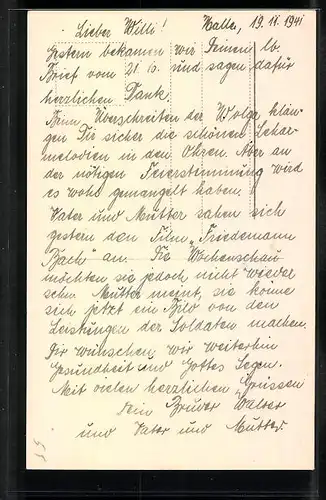 Lieber Willi! Halle, 19. 11. 1941
Gestern bekamen wir Deinen lb.
Brief vom 21. 10. und sagen dafür
herzlichen Dank.
Beim Überschreiten der Wolga klan-
gen Dir sicher die schönen Lehar-
melodien in den Ohren. Aber an
der nötigen Feuerstimmung wird
es wohl gemangelt haben.
Vater und Mutter sahen sich
gestern den Film „Friedemann
Bach“ an. Die Wochenschau
möchten sie jedoch nicht wieder
sehn. Mutter meint, sie könne
sich jetzt ein Bild von den
Leistungen der Soldaten machen.
Dir wünschen wir weiterhin
Gesundheit und Gottes Segen.
Mit vielen herzlichen Grüssen
Dein Bruder Walter
und Vater und Mutter.